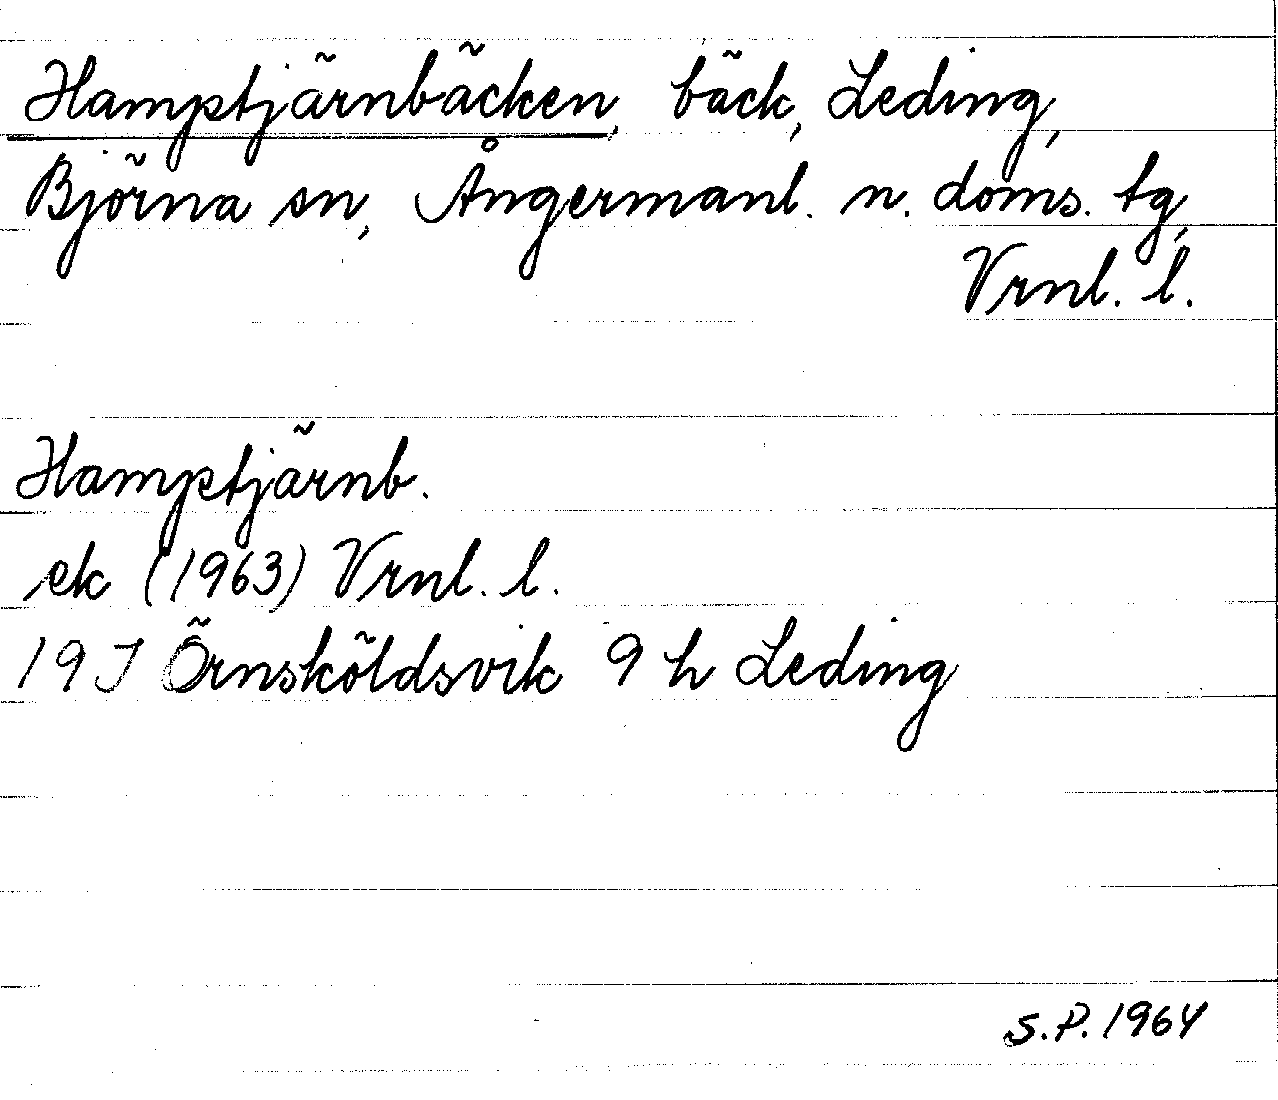 Hamptjärnbäcken, bäck, Leding,
Björna sn, Ångermanl. n. doms. tg,
Vrnl. l.
Hamptjärnb.
ek (1963) Vrnl. l.
19J Örnsköldsvik 9 h Leding
S.P. 1964